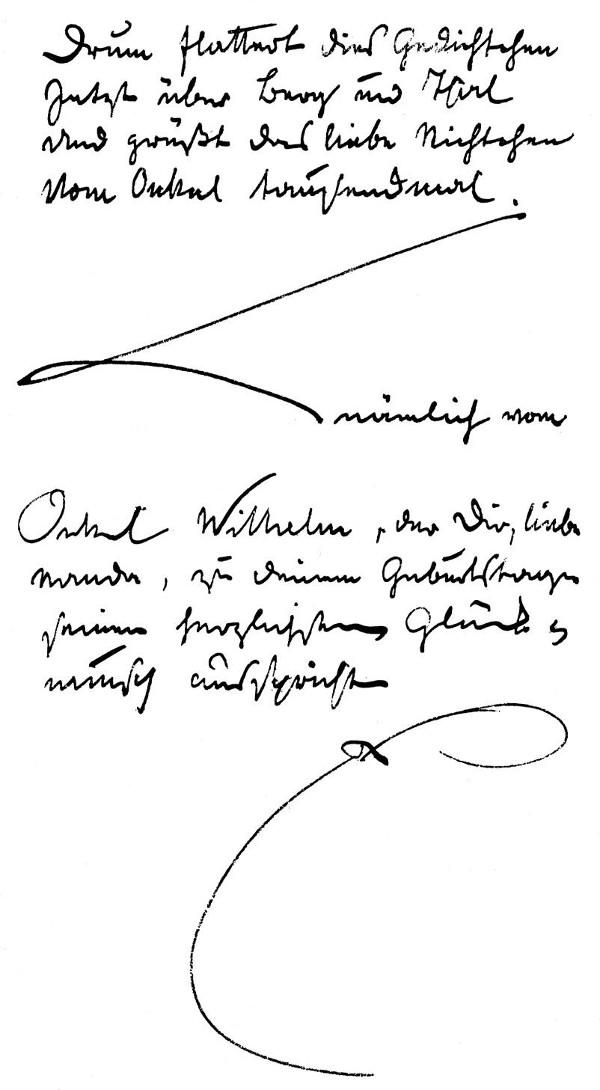 Drum flattert dies Gedichtchen
Jetzt über Berg und Thal
Und grüßt das liebe Nichtchen
Vom Onkel tausendmal.
nämlich vom
Onkel Wilhelm, der Dir, liebe
Wanda, zu deinem Geburtstage
seinen herzlichsten Glück=
wunsch ausspricht